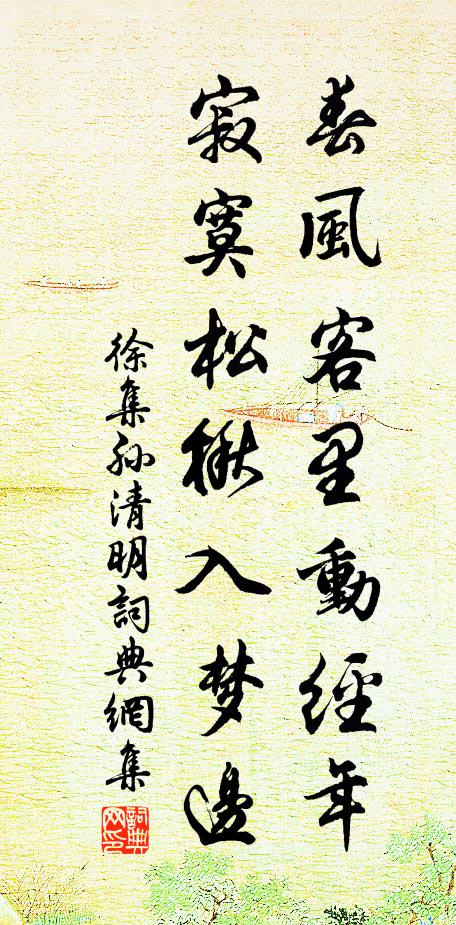 春風客里動經年
寂寞松楸入梦邊
徐集孙清明詞典網集
詞典網印